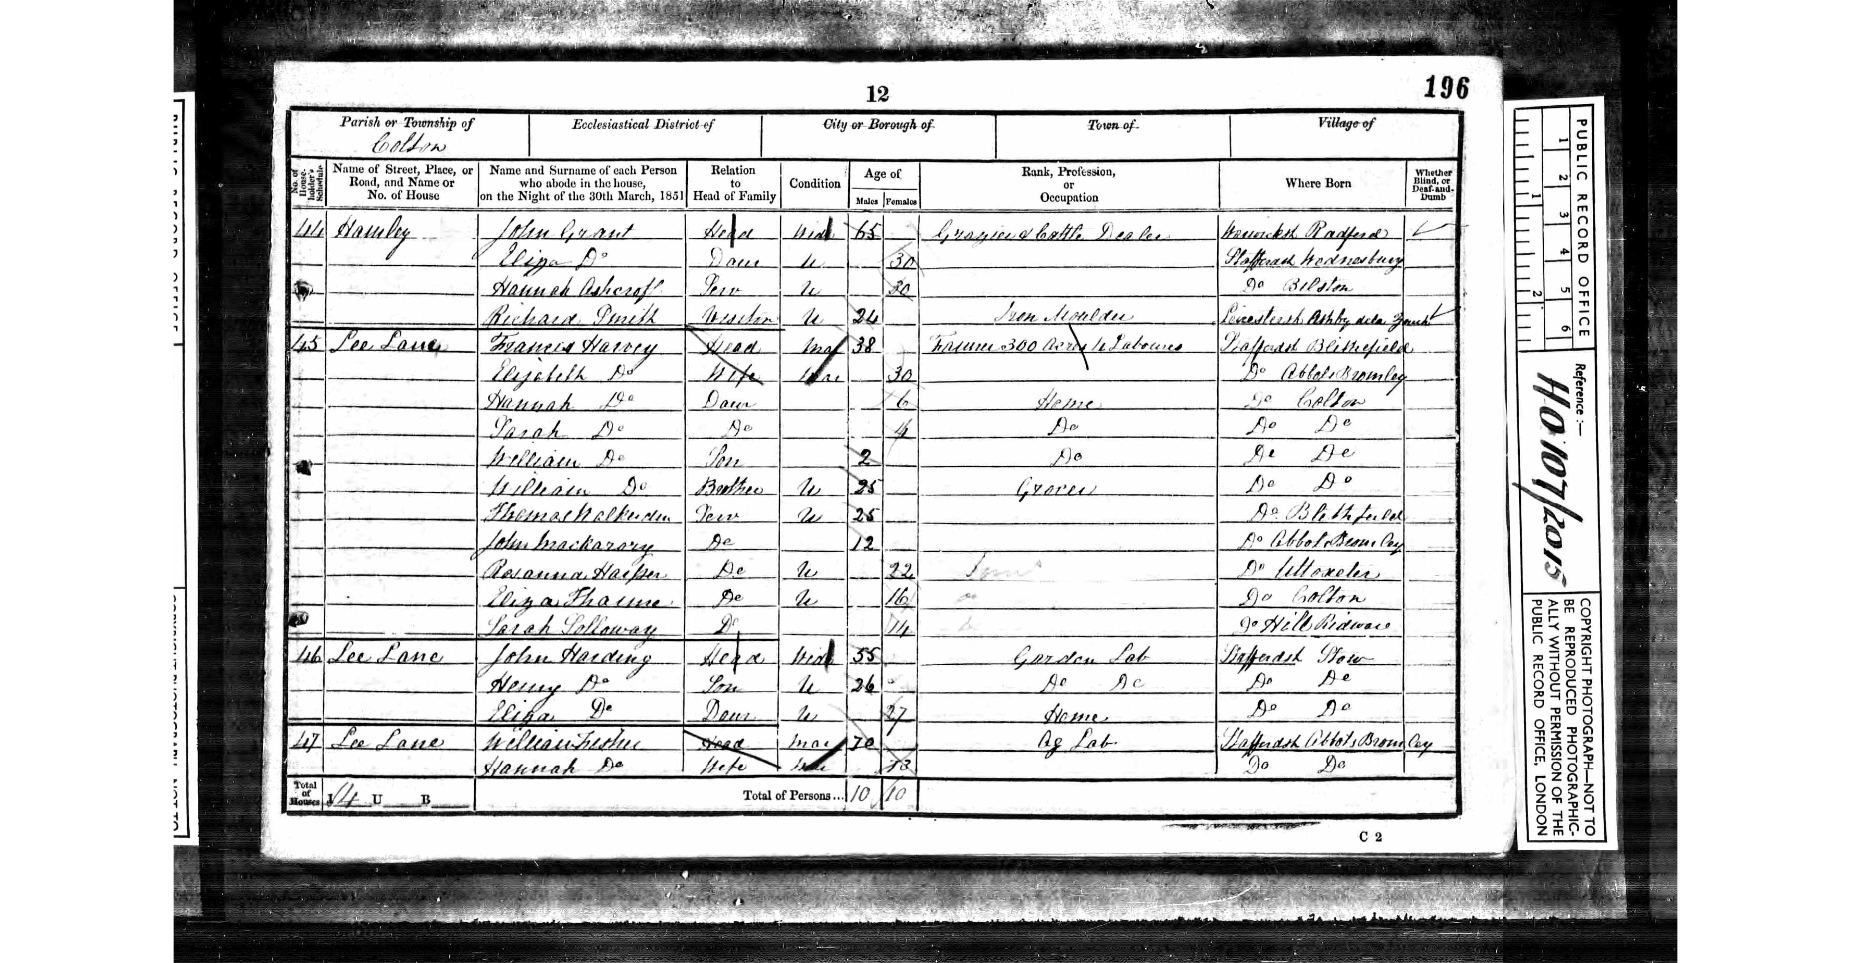 12
196
Parish or Township of Ecclesiastical District of City or Borough of Town of Village of
Colton
No. of House-holder's Schedule Name of Street, Place, or Road, and Name or No. of House Name and Surname of each Person who abode in the house, on the Night of the 30th March, 1851 Relation to Head of Family Condition Age of Males Females Rank, Profession, or Occupation Where Born Whether Blind, or Deaf-and-Dumb
44 Hamley John Grant Head Wid 65 Grazier & Cattle Dealer Warwicksh Radford
Eliza Do Daur U 30 Staffordsh Wednesbury
Hannah Ashcroft Serv U 20 Do Bilston
Richard Smith Visitor U 24 Iron Moulder Leicestersh Ashby dela Zouch
45 Lee Lane Francis Harvey Head Mar 38 Farmer 300 Acres Labourers Staffordsh Blithefield
Elizabeth Do Wife Mar 30 Do Abbots Bromley
Hannah Do Daur 6 Home Do Colton
Sarah Do Do 4 Do Do Do
William Do Son 2 Do Do Do
William Do Brother U 25 Grocer Do Do
Thomas Serv U 25 Do Blithfield
John Do 12 Do Abbots Bromley
Rosanna Harper Do U 22 Do Uttoxeter
Eliza Do U 16 Do Colton
Sarah Solloway Do 14 Do Hill Ridware
46 Lee Lane John Harding Head Wid 55 Garden Lab Staffordsh Stow
Henry Do Son U 26 Do Do Do Do
Eliza Do Daur U 27 Home Do Do
47 Lee Lane William Head Mar 70 Ag Lab Staffordsh Abbots Bromley
Hannah Do Wife Mar 73 Do Do
Total of Houses I 4 U B Total of Persons... 10 10
C 2
PUBLIC RECORD OFFICE
1 2 3 4 5 6
1 2
Reference :—
HO 107/2015
COPYRIGHT PHOTOGRAPH—NOT TO
BE REPRODUCED PHOTOGRAPHIC-
ALLY WITHOUT PERMISSION OF THE
PUBLIC RECORD OFFICE, LONDON